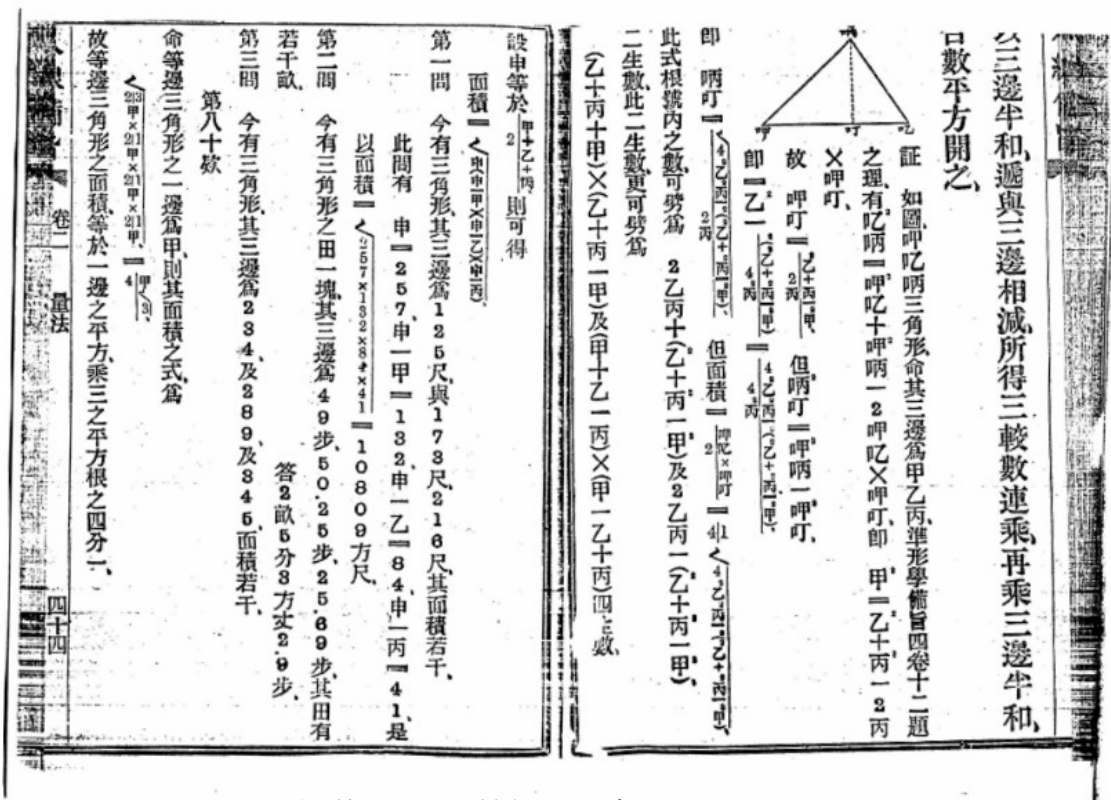 以三邊半和、遞與三邊相減、所得三較數連乘、再乘三邊半和、
數平方開之、
証　如圖、呷吃唡三角形、命其三邊爲甲乙丙、準形學備旨四卷十二題
之理、有吃唡²=呷吃²+呷唡²-2呷吃×呷叮、即　甲²=乙²+丙²-2丙
×呷叮、
故　呷叮=(乙²+丙²-甲²)/2丙　但唡叮²=呷唡²-呷叮²、
即　=乙²-(乙²+丙²-甲²)²/4丙²=(4乙²丙²-(乙²+丙²-甲²)²)/4丙²、
即　唡叮=√(4乙²丙²-(乙²+丙²-甲²)²)/2丙、但面積=(呷吃×唡叮)/2=1/4√(4乙²丙²-(乙²+丙²-甲²)²)、
此式根號內之數、可劈爲　2乙丙+(乙²+丙²-甲²)及2乙丙-(乙²+丙²-甲²)、
二生數、此二生數、更可劈爲
(乙+丙+甲)×(乙+丙-甲)及(甲+乙-丙)×(甲-乙+丙)四生數、
設申等於(甲+乙+丙)/2、則可得
面積=√(申(申-甲)×(申-乙)×(申-丙))
第一問　今有三角形、其三邊爲125尺、與173尺、216尺、其面積若干、
此問有　申=257、申-甲=132、申-乙=84、申-丙=41、是
以面積=√(257×132×84×41)=10809方尺、
第二問　今有三角形之田一塊、其三邊爲49步、50.25步、25.69步、其田有
若干畝、
答2畝5分3方丈2.9步、
第三問　今有三角形、其三邊爲234及289及345、面積若干、
第八十欵
命等邊三角形之一邊爲甲、則其面積之式爲
√(3/2甲×1/2甲×1/2甲×1/2甲)=甲²√3/4、
故等邊三角形之面積、等於一邊之平方、乘三之平方根之四分一、
卷二　量法　四十四